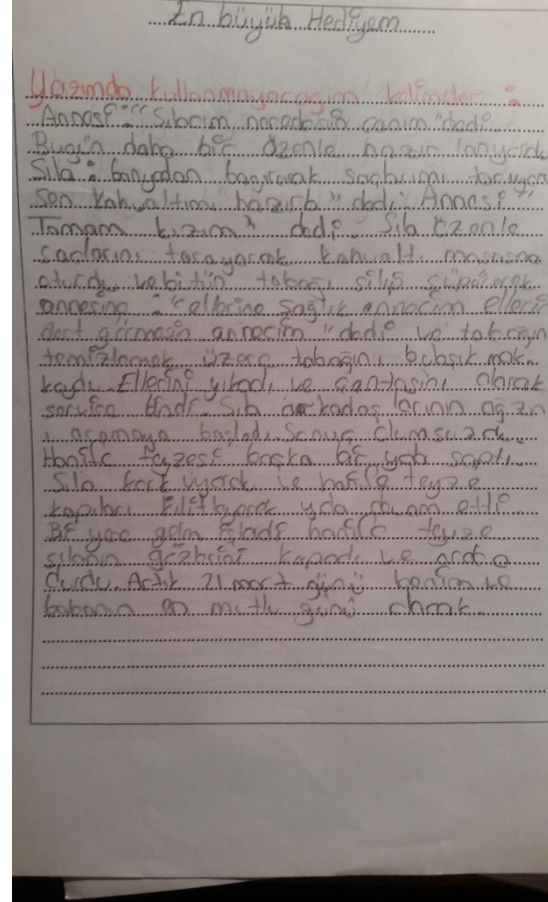 En büyük Hediyem
Yazımda kullanmayacağım kelimeler :
Annesi : "Sılacım neredesin canım" dedi.
Bugün daha bir özenle hazırlanıyordu
Sıla : banyodan bağırarak saçlarımı tarıyom
sen kahvaltımı hazırla" dedi. Annesi :
Tamam kızım" dedi. Sıla özenle
saçlarını tarayarak kahvaltı masasına
oturdu ve bütün tabağı silip süpürerek
annesine : "ellerine sağlık annecim ellerin
dert görmesin annecim" dedi ve tabağın
temizlemek üzere tabağını bulaşık mak.
koydu. Ellerini yıkadı ve çantasını alarak
servise bindi. Sıla arkadaşlarının ağzın
ı aramaya başladı. Sonuç olumsuzdu.
Hafile teyzesi başka bir yola saptı.
Sıla ve hafile teyze
kapıları kilitleyerek yola devam etti
Bir yere gelmişlerdi hafile teyze
sılanın gözlerini kapadı ve arаba
durdu. Artık 21 mart günü benim ve
babamın en mutlu günü olarak